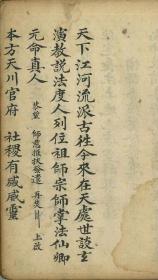 天下江河流派古徃今來在天處世談玄
演教說法度人列位祖師宗師掌法仙卿
元命真人 恭望 師慈推扶發遣 再失 上改
本方天川官府 社稷有感威靈